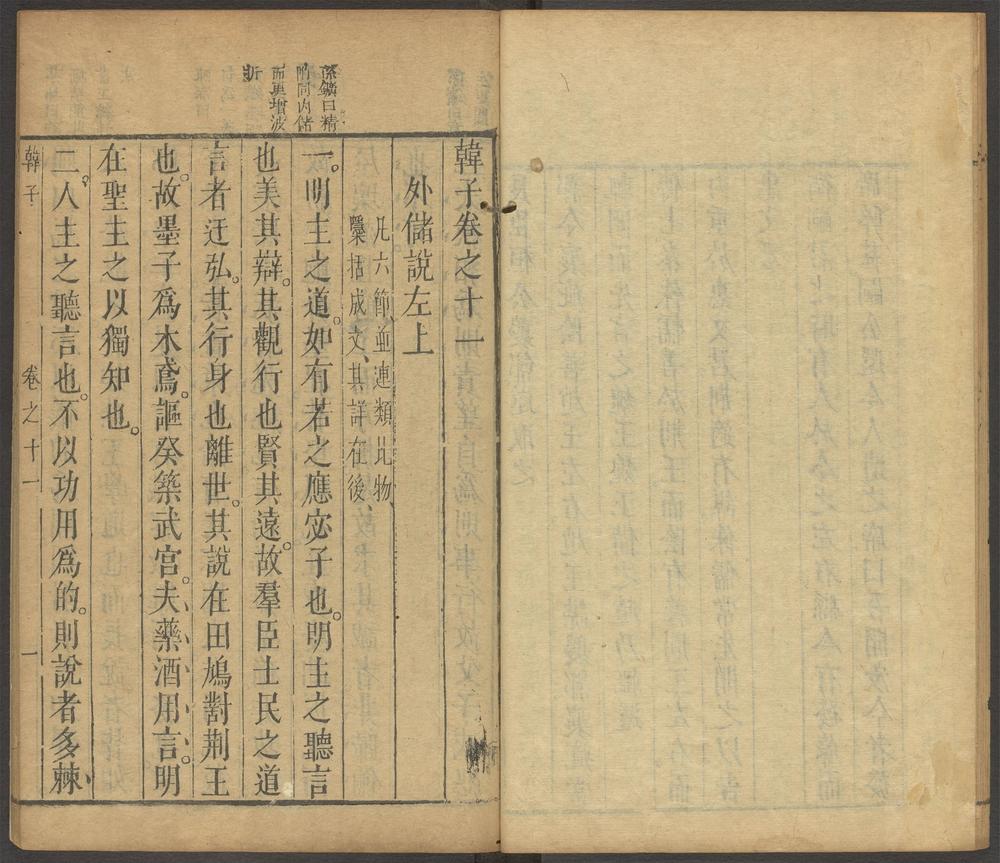 孫鑛曰精
附同內儲
而更增波
折
韓子卷之十一
外儲說左上
凡六節並連類比物
櫽括成文其詳在後
一。明主之道。如有若之應宓子也。明主之聽言
也美其辯。其觀行也賢其遠。故羣臣士民之道
言者迂弘。其行身也離世。其說在田鳩對荆王
也。故墨子爲木鳶。謳癸築武宮。夫藥酒用言。明
在聖主之以獨知也。
二。人主之聽言也。不以功用爲的。則說者多棘
韓子
卷之十一
一